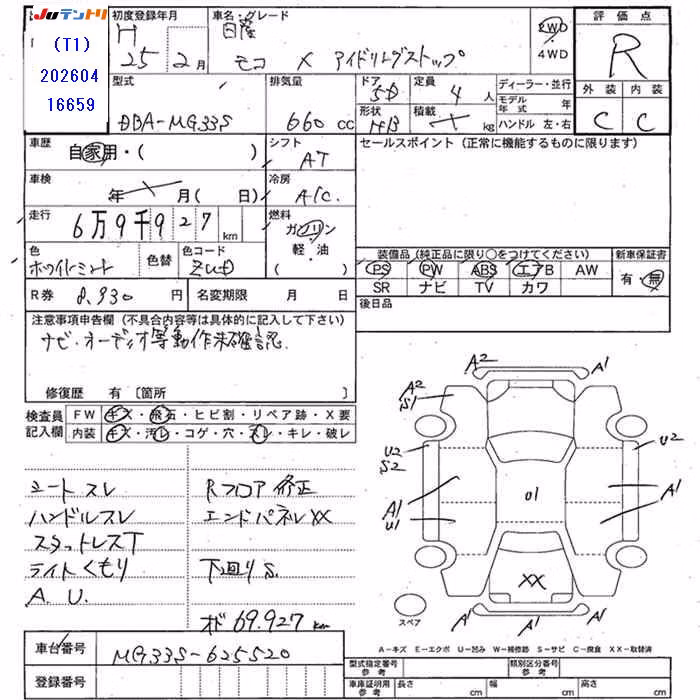 JUテントリ
(T1)
202604
16659
初度登録年月
H 25年 2月
車名・グレード
日産
モコ X アイドリングストップ
2WD
4WD
評価点
R
外装 内装
C C
型式
DBA-MG33S
排気量
660 cc
ドア
5D
形状
HB
定員
4人
積載
kg
ディーラー・並行
モデル年式 年
ハンドル 左・右
車歴
自家用・( )
シフト
AT
セールスポイント (正常に機能するものに限ります)
車検
年 月 ( 日)
冷房
A/C
走行
6万9千927 km
燃料
ガソリン
軽・油
( )
色
ホワイトミント
色替
色コード
ZUD
装備品 (純正品に限り○をつけてください)
PS PW ABS エアB AW
SR ナビ TV カワ
新車保証書
有・無
R券 8,930円
名変期限 月 日
後日品
注意事項申告欄 (不具合内容等は具体的に記入して下さい)
ナビ・オーディオ等動作未確認
修復歴 有 〔箇所 〕
検査員記入欄
FW キズ・飛石・ヒビ割・リペア跡・X要
内装 キズ・汚レ・コゲ・穴・スレ・キレ・破レ
シートスレ
ハンドルスレ
スタットレスT
ライトくもり
A.U.
Rフロア修正
エンドパネルXX
下廻りS.
オド 69.927km
A2
A1
A2
S1
U2
S2
U2
A1
U1
01
A1
XX
A1
A1
A1
スペア
A-キズ E-エクボ U-凹み W-補修跡 S-サビ C-腐食 XX-取替済
車台番号
MG33S-625520
登録番号
型式指定番号
参考
類別区分番号
参考
車庫証明用
参考
長さ cm
幅 cm
高さ cm